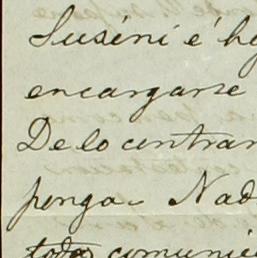 Suséni é h
encargarse
De lo contrar
ponga. Nad
todos comunic